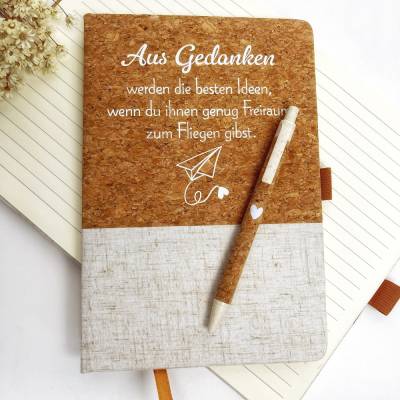 Aus Gedanken
werden die besten Ideen,
wenn du ihnen genug Freiraum
zum Fliegen gibst.